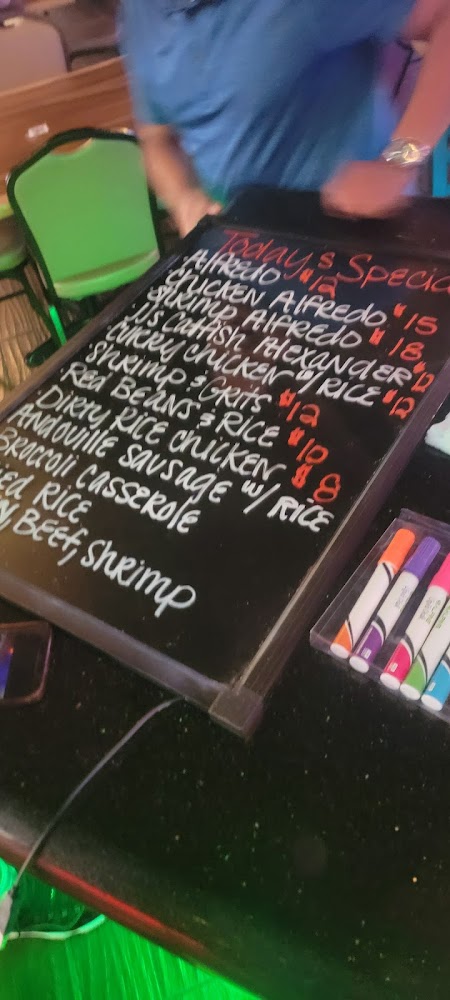 Today's Specia
Alfredo $12
Chicken Alfredo $15
Shrimp Alfredo $18
JJ's Catfish Alexander $12
Curry Chicken w/ Rice $12
Shrimp & Grits $12
Red Beans & Rice $10
Dirty Rice Chicken $8
Andouille Sausage w/ Rice
Broccoli Casserole
ied Rice
Beef, Shrimp